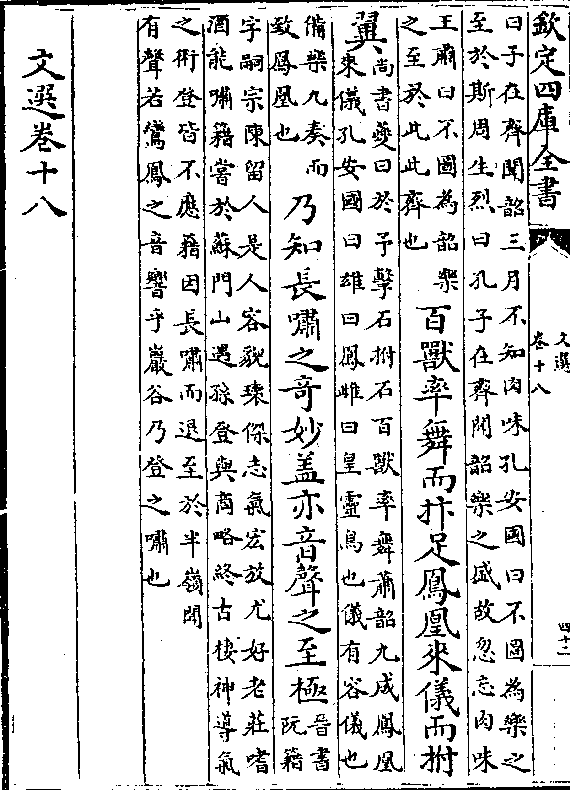 欽定四庫全書
文選
卷十八
四十二
曰子在齊聞韶三月不知肉味孔安國曰不圖為樂之
至於斯周生烈曰孔子在齊聞韶樂之盛故忽忘肉味
王肅曰不圖為韶樂
之至於此此齊也
百獸率舞而抃足鳳凰來儀而拊
翼
尚書夔曰於予擊石拊石百獸率舞蕭韶九成鳳凰
來儀孔安國曰雄曰鳳雌曰皇靈鳥也儀有容儀也
備樂九奏而
致鳳凰也
乃知長嘯之奇妙盖亦音聲之至極
晉書
阮籍
字嗣宗陳留人是人容貌瓌傑志氣宏放尤好老莊嗜
酒能嘯籍嘗於蘇門山遇孫登與商略終古棲神導氣
之術登皆不應籍因長嘯而退至於半嶺聞
有聲若鸞鳳之音響乎巖谷乃登之嘯也
文選卷十八